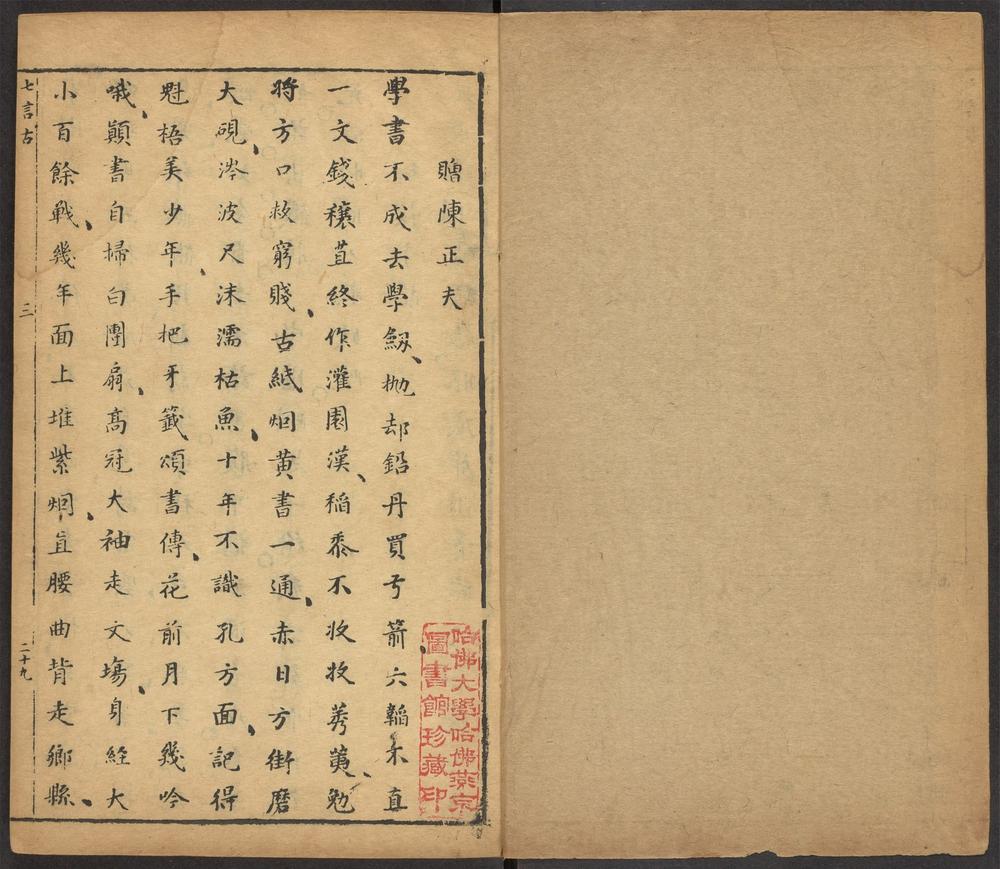 贈陳正夫
學書不成去學劔抛却鉛丹買弓箭六韜未直
一文錢穰苴終作灌園漢稻黍不收收莠荑勉
將方口救窮賤古紙烱黄書一通赤日方街磨
大硯涔波尺沫濡枯魚十年不識孔方面記得
魁梧美少年手把牙籤頌書傳花前月下幾吟
哦顛書自掃白團扇髙冠大袖走文塲身經大
小百餘戰幾年面上堆紫烱直腰曲背走鄉縣
七言古
三
二十九
哈佛大學哈佛燕京
圖書館珍藏印